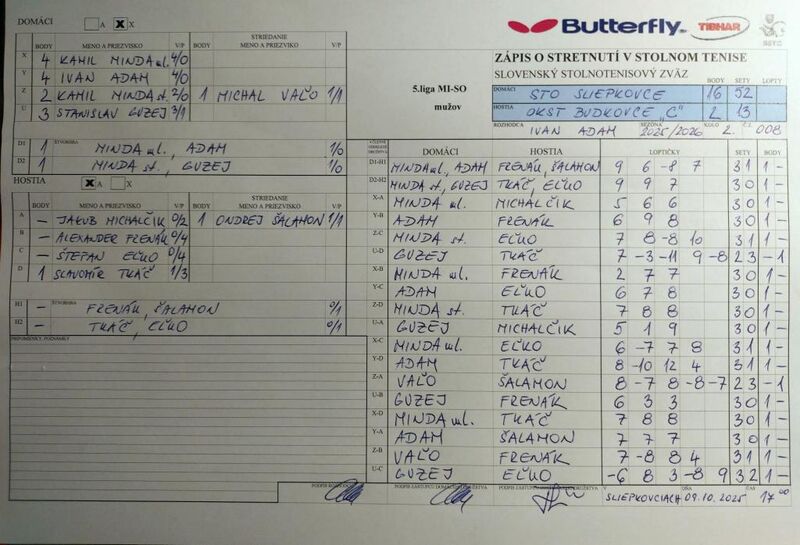 DOMÁCI A X X
Butterfly TIBHAR SSTZ
STRIEDANIE
BODY MENO A PRIEZVISKO V/P BODY MENO A PRIEZVISKO V/P
X 4 KAMIL MINDA ml. 4/0
Y 4 IVAN ADAM 4/0
Z 2 KAMIL MINDA st. 2/0 1 MICHAL VAĽO 1/1
U 3 STANISLAV GUZEJ 3/1
ZÁPIS O STRETNUTÍ V STOLNOM TENISE
SLOVENSKÝ STOLNOTENISOVÝ ZVÄZ
5.liga MI-SO
mužov
BODY SETY LOPTY
DOMÁCI STO SLIEPKOVCE 16 52
HOSTIA OKST BUDKOVCE „C" 2 13
ROZHODCA IVAN ADAM SEZÓNA 2025/2026 KOLO 2. Č.Z. 008
ŠTVORHRA
D1 1 MINDA ml., ADAM 1/0
D2 1 MINDA st., GUZEJ 1/0
HOSTIA A X Y
STRIEDANIE
BODY MENO A PRIEZVISKO V/P BODY MENO A PRIEZVISKO V/P
A – JAKUB MICHALČIK 0/2 1 ONDREJ ŠALAMON 1/1
B – ALEXANDER FRENÁK 0/4
C – ŠTEFAN EĽKO 0/4
D 1 SLAVOMÍR TKÁČ 1/3
ŠTVORHRA
H1 – FRENÁK, ŠALAMON 0/1
H2 – TKÁČ, EĽKO 0/1
PRIPOMIENKY, POZNÁMKY
DOMÁCI HOSTIA LOPTIČKY SETY BODY
D1-H1 MINDA ml., ADAM FRENÁK, ŠALAMON 9 6 -8 7 3 1 1 –
D2-H2 MINDA st., GUZEJ TKÁČ, EĽKO 9 9 7 3 0 1 –
X-A MINDA ml. MICHALČIK 5 6 6 3 0 1 –
Y-B ADAM FRENÁK 6 9 8 3 0 1 –
Z-C MINDA st. EĽKO 7 8 -8 10 3 1 1 –
U-D GUZEJ TKÁČ 7 -3 -11 9 -8 2 3 – 1
X-B MINDA ml. FRENÁK 2 7 7 3 0 1 –
Y-C ADAM EĽKO 6 7 8 3 0 1 –
Z-D MINDA st. TKÁČ 7 8 8 3 0 1 –
U-A GUZEJ MICHALČIK 5 1 9 3 0 1 –
X-C MINDA ml. EĽKO 6 -7 7 8 3 1 1 –
Y-D ADAM TKÁČ 8 -10 12 4 3 1 1 –
Z-A VAĽO ŠALAMON 8 -7 8 -8 -7 2 3 – 1
U-B GUZEJ FRENÁK 6 3 3 3 0 1 –
X-D MINDA ml. TKÁČ 7 8 8 3 0 1 –
Y-A ADAM ŠALAMON 7 7 7 3 0 1 –
Z-B VAĽO FRENÁK 7 -8 8 4 3 1 1 –
U-C GUZEJ EĽKO -6 8 3 -8 9 3 2 1 –
PODPIS ROZHODCU PODPIS ZÁSTUPCU DOMÁCEHO DRUŽSTVA V SLIEPKOVCIACH DŇA 09.10.2025 ČAS 17 00